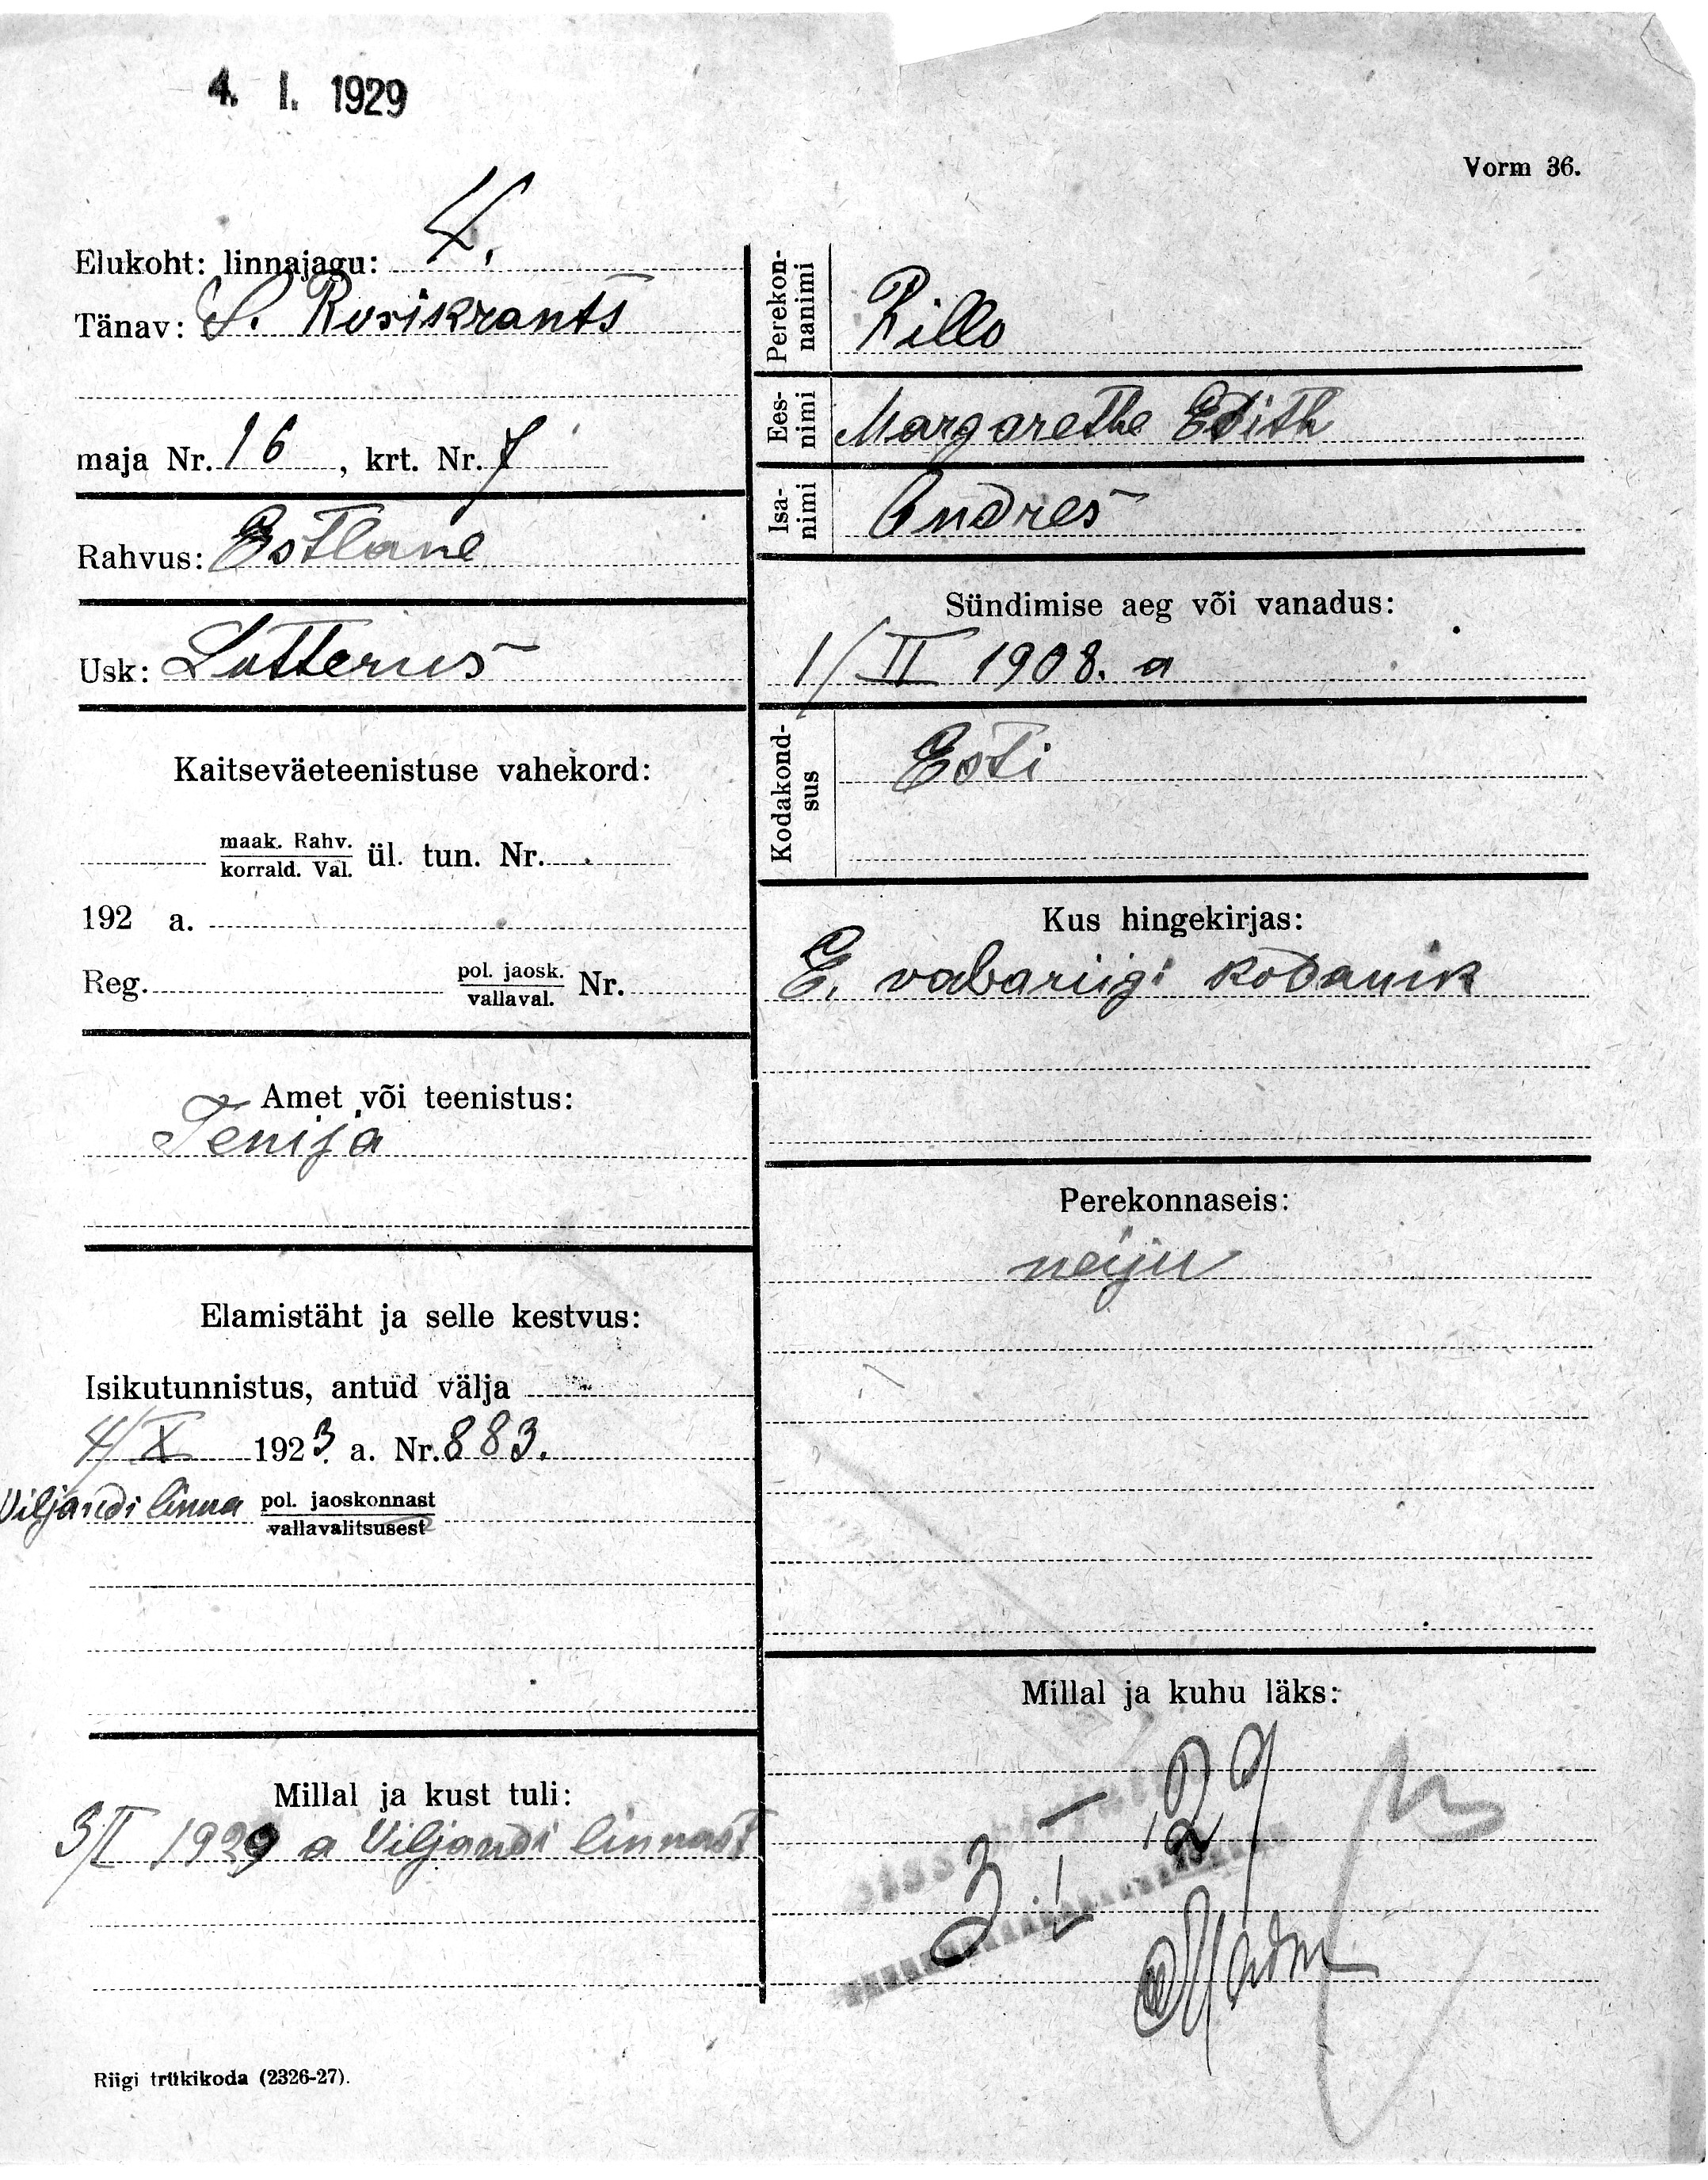 4. I. 1929
Vorm 36.
Elukoht: linnajagu: 4.
Tänav: S. Rosikrants
maja Nr. 16, krt. Nr. 7
Rahvus: Estlane
Usk: Lutterus
Kaitseväeteenistuse vahekord:
maak. Rahv.
korrald. Val. ül. tun. Nr.
192 a.
Reg. pol. jaosk. Nr.
vallaval.
Amet või teenistus:
Tenija
Elamistäht ja selle kestvus:
Isikutunnistus, antud välja
4/X 1923. a. Nr. 883.
Viljandi linna pol. jaoskonnast
vallavalitsusest
Millal ja kust tuli:
3/I 1929 a Viljandi linnast
Riigi trükikoda (2326-27).
Perekon-
nanimi
Rillo
Ees-
nimi
Margarethe Edith
Isa-
nimi
Andres
Sündimise aeg või vanadus:
1/II 1908. a
Kodakond-
sus
Esti
Kus hingekirjas:
E. vabariigi kodanik
Perekonnaseis:
neiju
Millal ja kuhu läks:
3. I 29